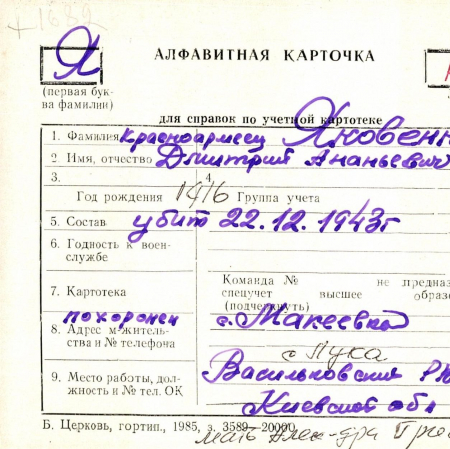 Я
АЛФАВИТНАЯ КАРТОЧКА
(первая бук-
ва фамилии)
для справок по учетной картотеке
1. Фамилия красноармеец Яковен
2. Имя, отчество Дмитрий Ананьевич
3. 4.
Год рождения 1916 Группа учета
5. Состав убит 22.12.1943г
6. Годность к воен-
службе
Команда № не предназ
7. Картотека спецучет высшее образо
(подчеркнуть)
похоронен с. Макеевка
8. Адрес м-житель-
ства и № телефона
с Лука
9. Место работы, дол-
жность и № тел. ОК
Васильковский РК
Киевской обл
Б. Церковь, гортип., 1985, з. 3589—20000
мать